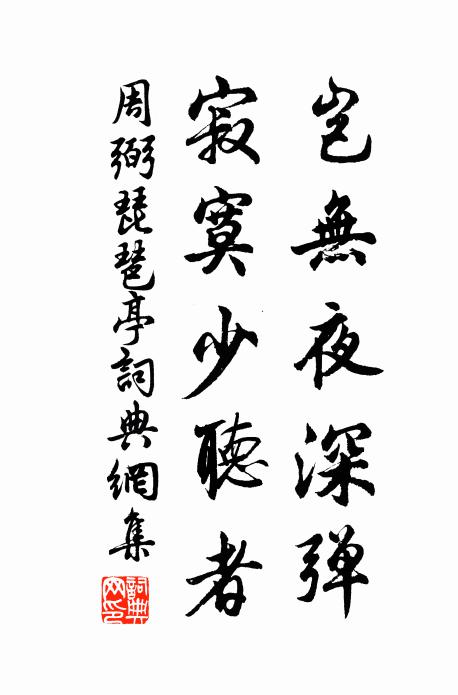 豈無夜深弹
寂寞少聽者
周弼琵琶亭詞典網集
詞典
网印